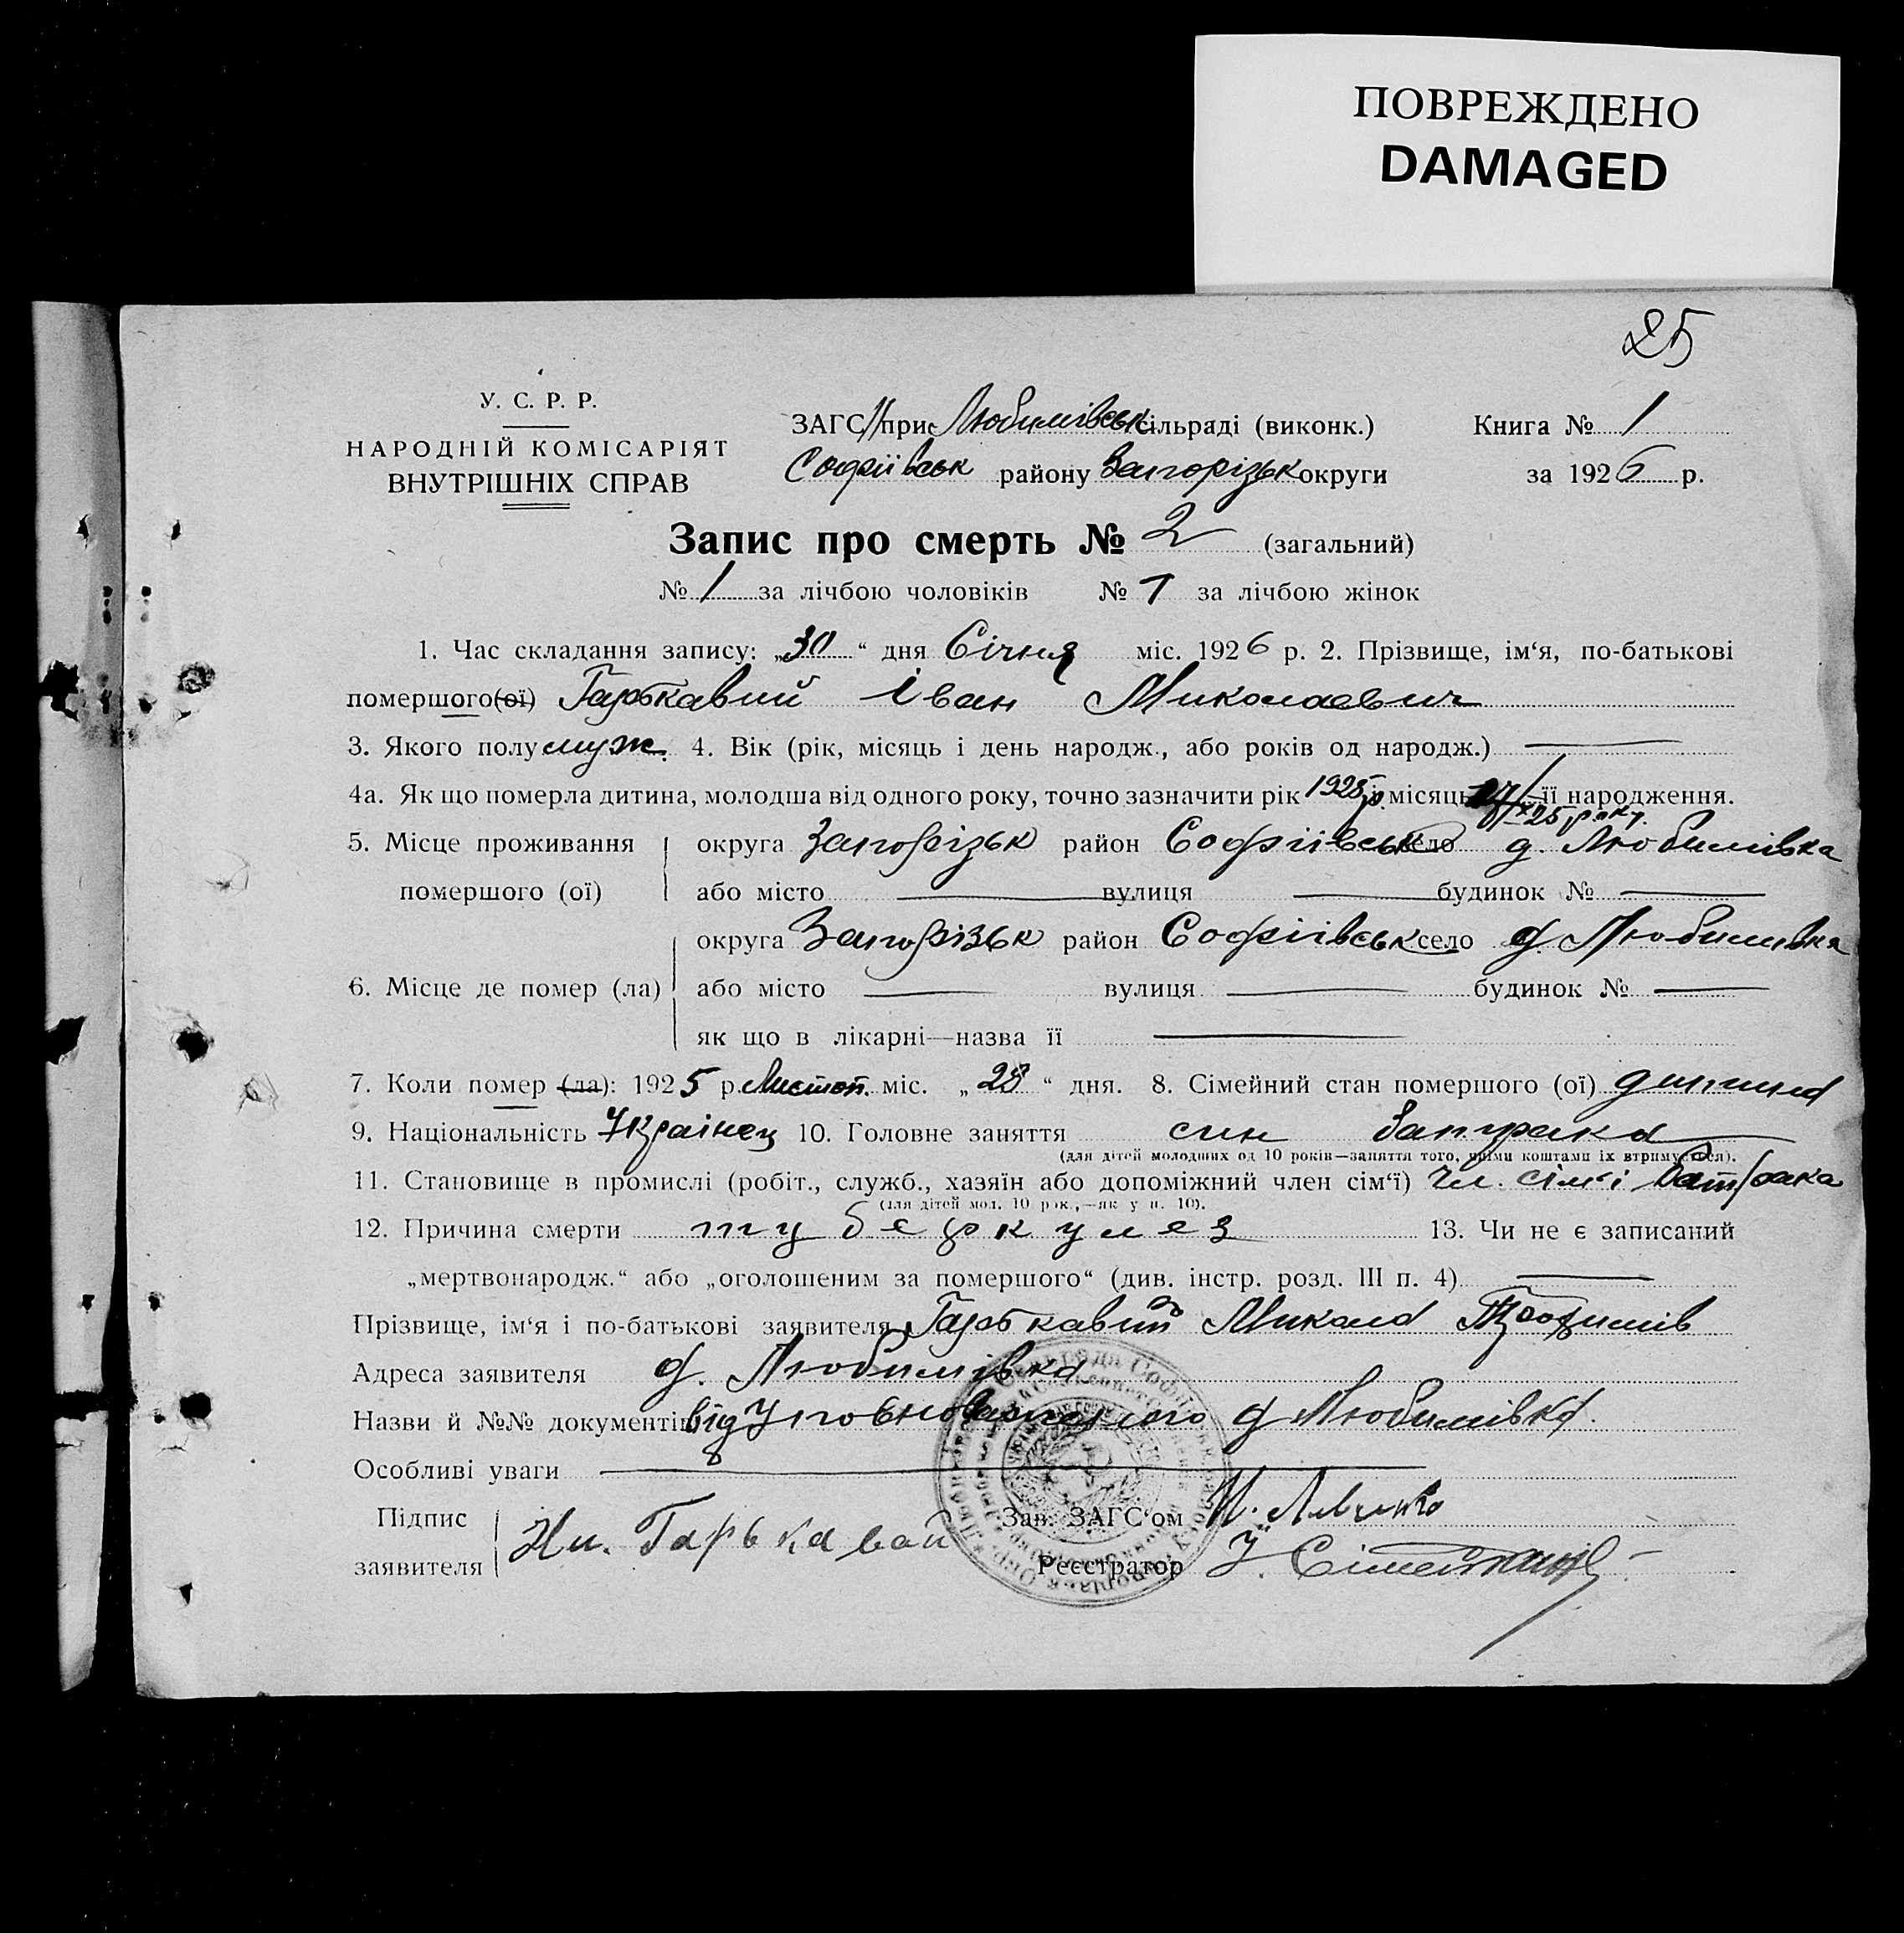 ПОВРЕЖДЕНО
DAMAGED
25
У. С. Р. Р.
НАРОДНІЙ КОМІСАРІЯТ
ВНУТРІШНІХ СПРАВ
ЗАГС при Любимівськ сільраді (виконк.)
Софіівськ району Запорізьк округи
Книга № 1
за 1926 р.
Запис про смерть № 2 (загальний)
№ 1 за лічбою чоловіків № 1 за лічбою жінок
1. Час складання запису: „30“ дня Січня міс. 1926 р. 2. Прізвище, ім‘я, по-батькові
помершого(ої) Гарькавий Іван Миколаевич
3. Якого полу муж. 4. Вік (рік, місяць і день народж., або років од народж.) —
4а. Як що померла дитина, молодша від одного року, точно зазначити рік 1925 р. місяць її народження.
25 року.
5. Місце проживання помершого (ої) округа Запорізьк район Софіівськ село д. Любимівка
або місто — вулиця — будинок № —
6. Місце де помер (ла) округа Запорізьк район Софіівськ село д. Любимівка
або місто — вулиця — будинок № —
як що в лікарні—назва її —
7. Коли помер (ла): 1925 р. Листоп. міс. „28“ дня. 8. Сімейний стан помершого (ої) дитина
9. Національність Украінец 10. Головне заняття син батрака
(для дітей молодших од 10 років—заняття того, чиїми коштами їх втримується).
11. Становище в промислі (робіт., служб., хазяїн або допоміжний член сім‘ї) чл. сім‘і батрака
(для дітей мол. 10 рок.,—як у п. 10).
12. Причина смерти туберкулез 13. Чи не є записаний
„мертвонародж.“ або „оголошеним за помершого“ (див. інстр. розд. III п. 4) —
Прізвище, ім‘я і по-батькові заявителя Гарькавий Микола Трофимів
Адреса заявителя д. Любимівка
Назви й №№ документів від Уповноваженого д Любимівка.
Особливі уваги —
Підпис заявителя Ни. Гарькавай
Зав. ЗАГС‘ом
Реєстратор